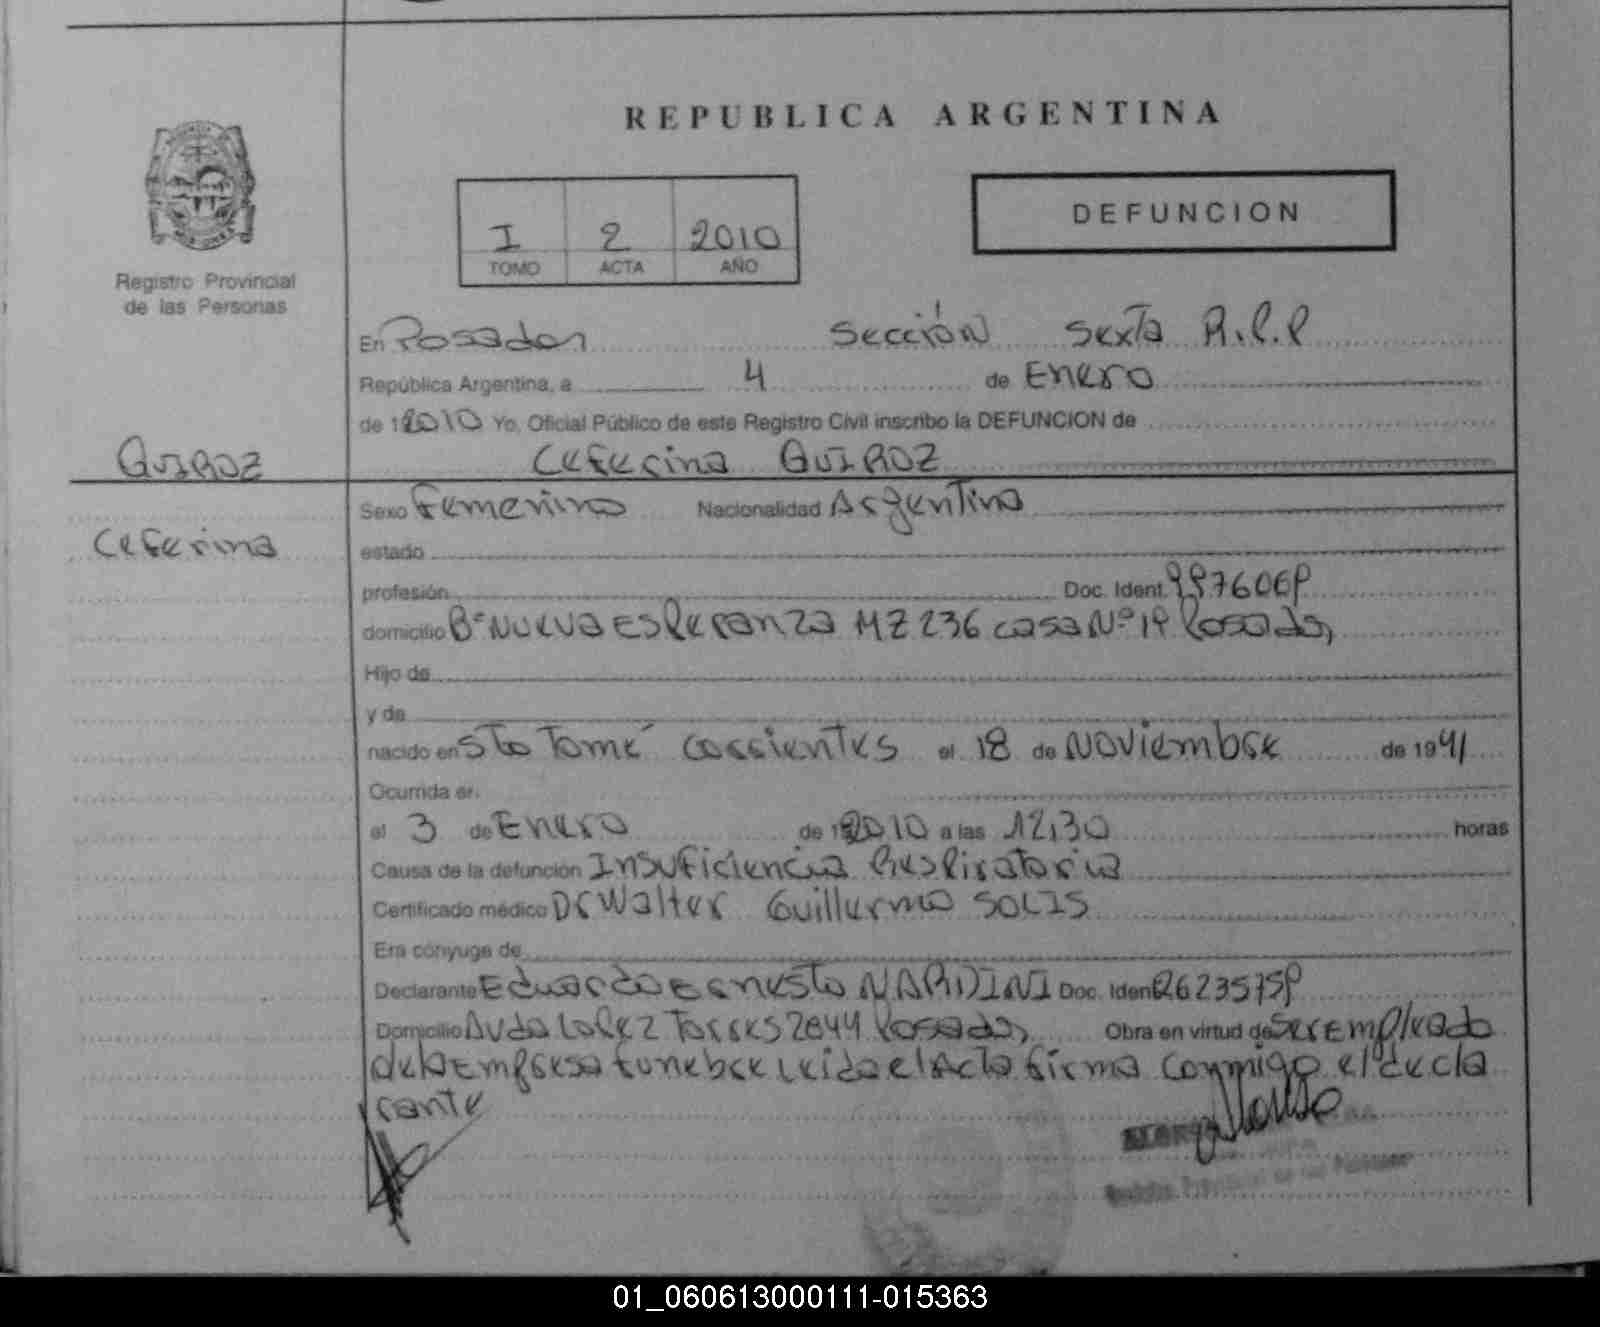 REPUBLICA ARGENTINA
I 2 2010
TOMO ACTA AÑO
DEFUNCION
Registro Provincial
de las Personas
En Posadas Sección Sexta R.P.P
República Argentina, a 4 de Enero
de 2010 Yo, Oficial Público de este Registro Civil inscribo la DEFUNCION de
QUIROZ
Ceferina QUIROZ
Ceferina
Sexo Femenino Nacionalidad Argentina
estado
profesión Doc. Ident.
domicilio Bº Nueva Esperanza MZ 236 casa Nº 19 Posadas
Hijo de
y de
nacido en Sto Tomé Corrientes el 18 de Noviembre de 1941
Ocurrida en
el 3 de Enero de 2010 a las 12,30 horas
Causa de la defunción Insuficiencia Respiratoria
Certificado médico Dr Walter Guillermo SOLIS
Era cónyuge de
Declarante Eduardo Ernesto NARDINI Doc. Ident 26235759
Domicilio Avda Lopez Torres 2844 Posadas, Obra en virtud de Ser Empleado
de la Empresa funebre Leida el Acta firma conmigo el decla
rante
01_060613000111-015363